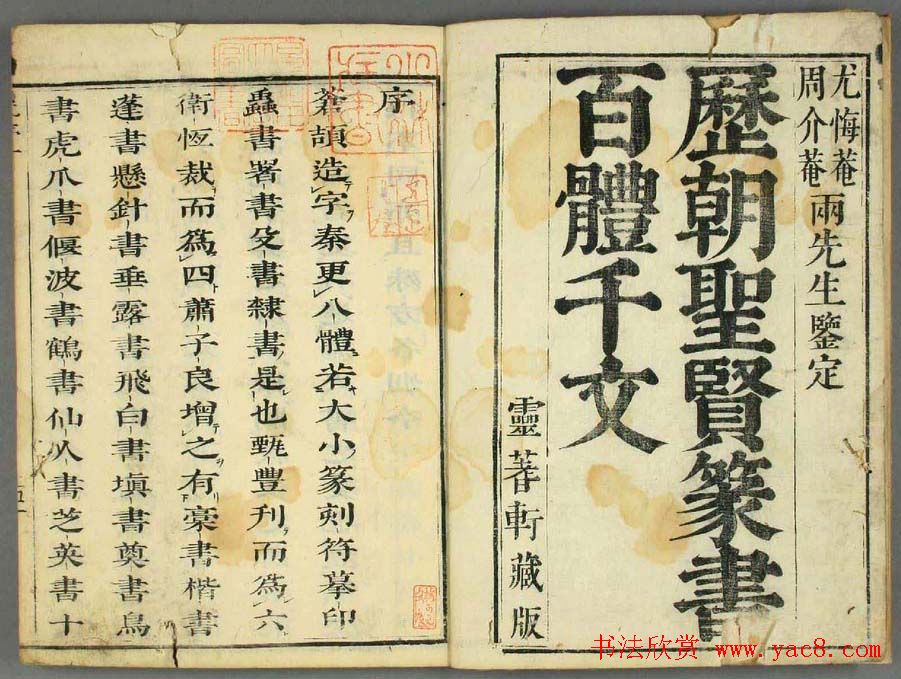 尤悔菴
周介菴
兩先生鑒定
歷朝聖賢篆書
百體千文
靈蓍軒藏版
序
蒼頡造字秦更八體若大小篆刻符摹印
蟲書署書殳書隸書是也甄豐刋而爲六
衛恆裁而爲四蕭子良增之有藁書楷書
蓬書懸針書垂露書飛白書塡書奠書鳥
書虎爪書偃波書鶴書仙人書芝英書十
书法欣赏 www.yac8.com